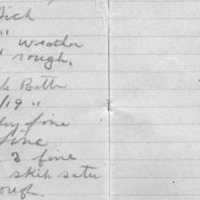 Sick
" Weather
" rough.
Bette
/19 "
fine
fine
3 fine
skip satu
rough.